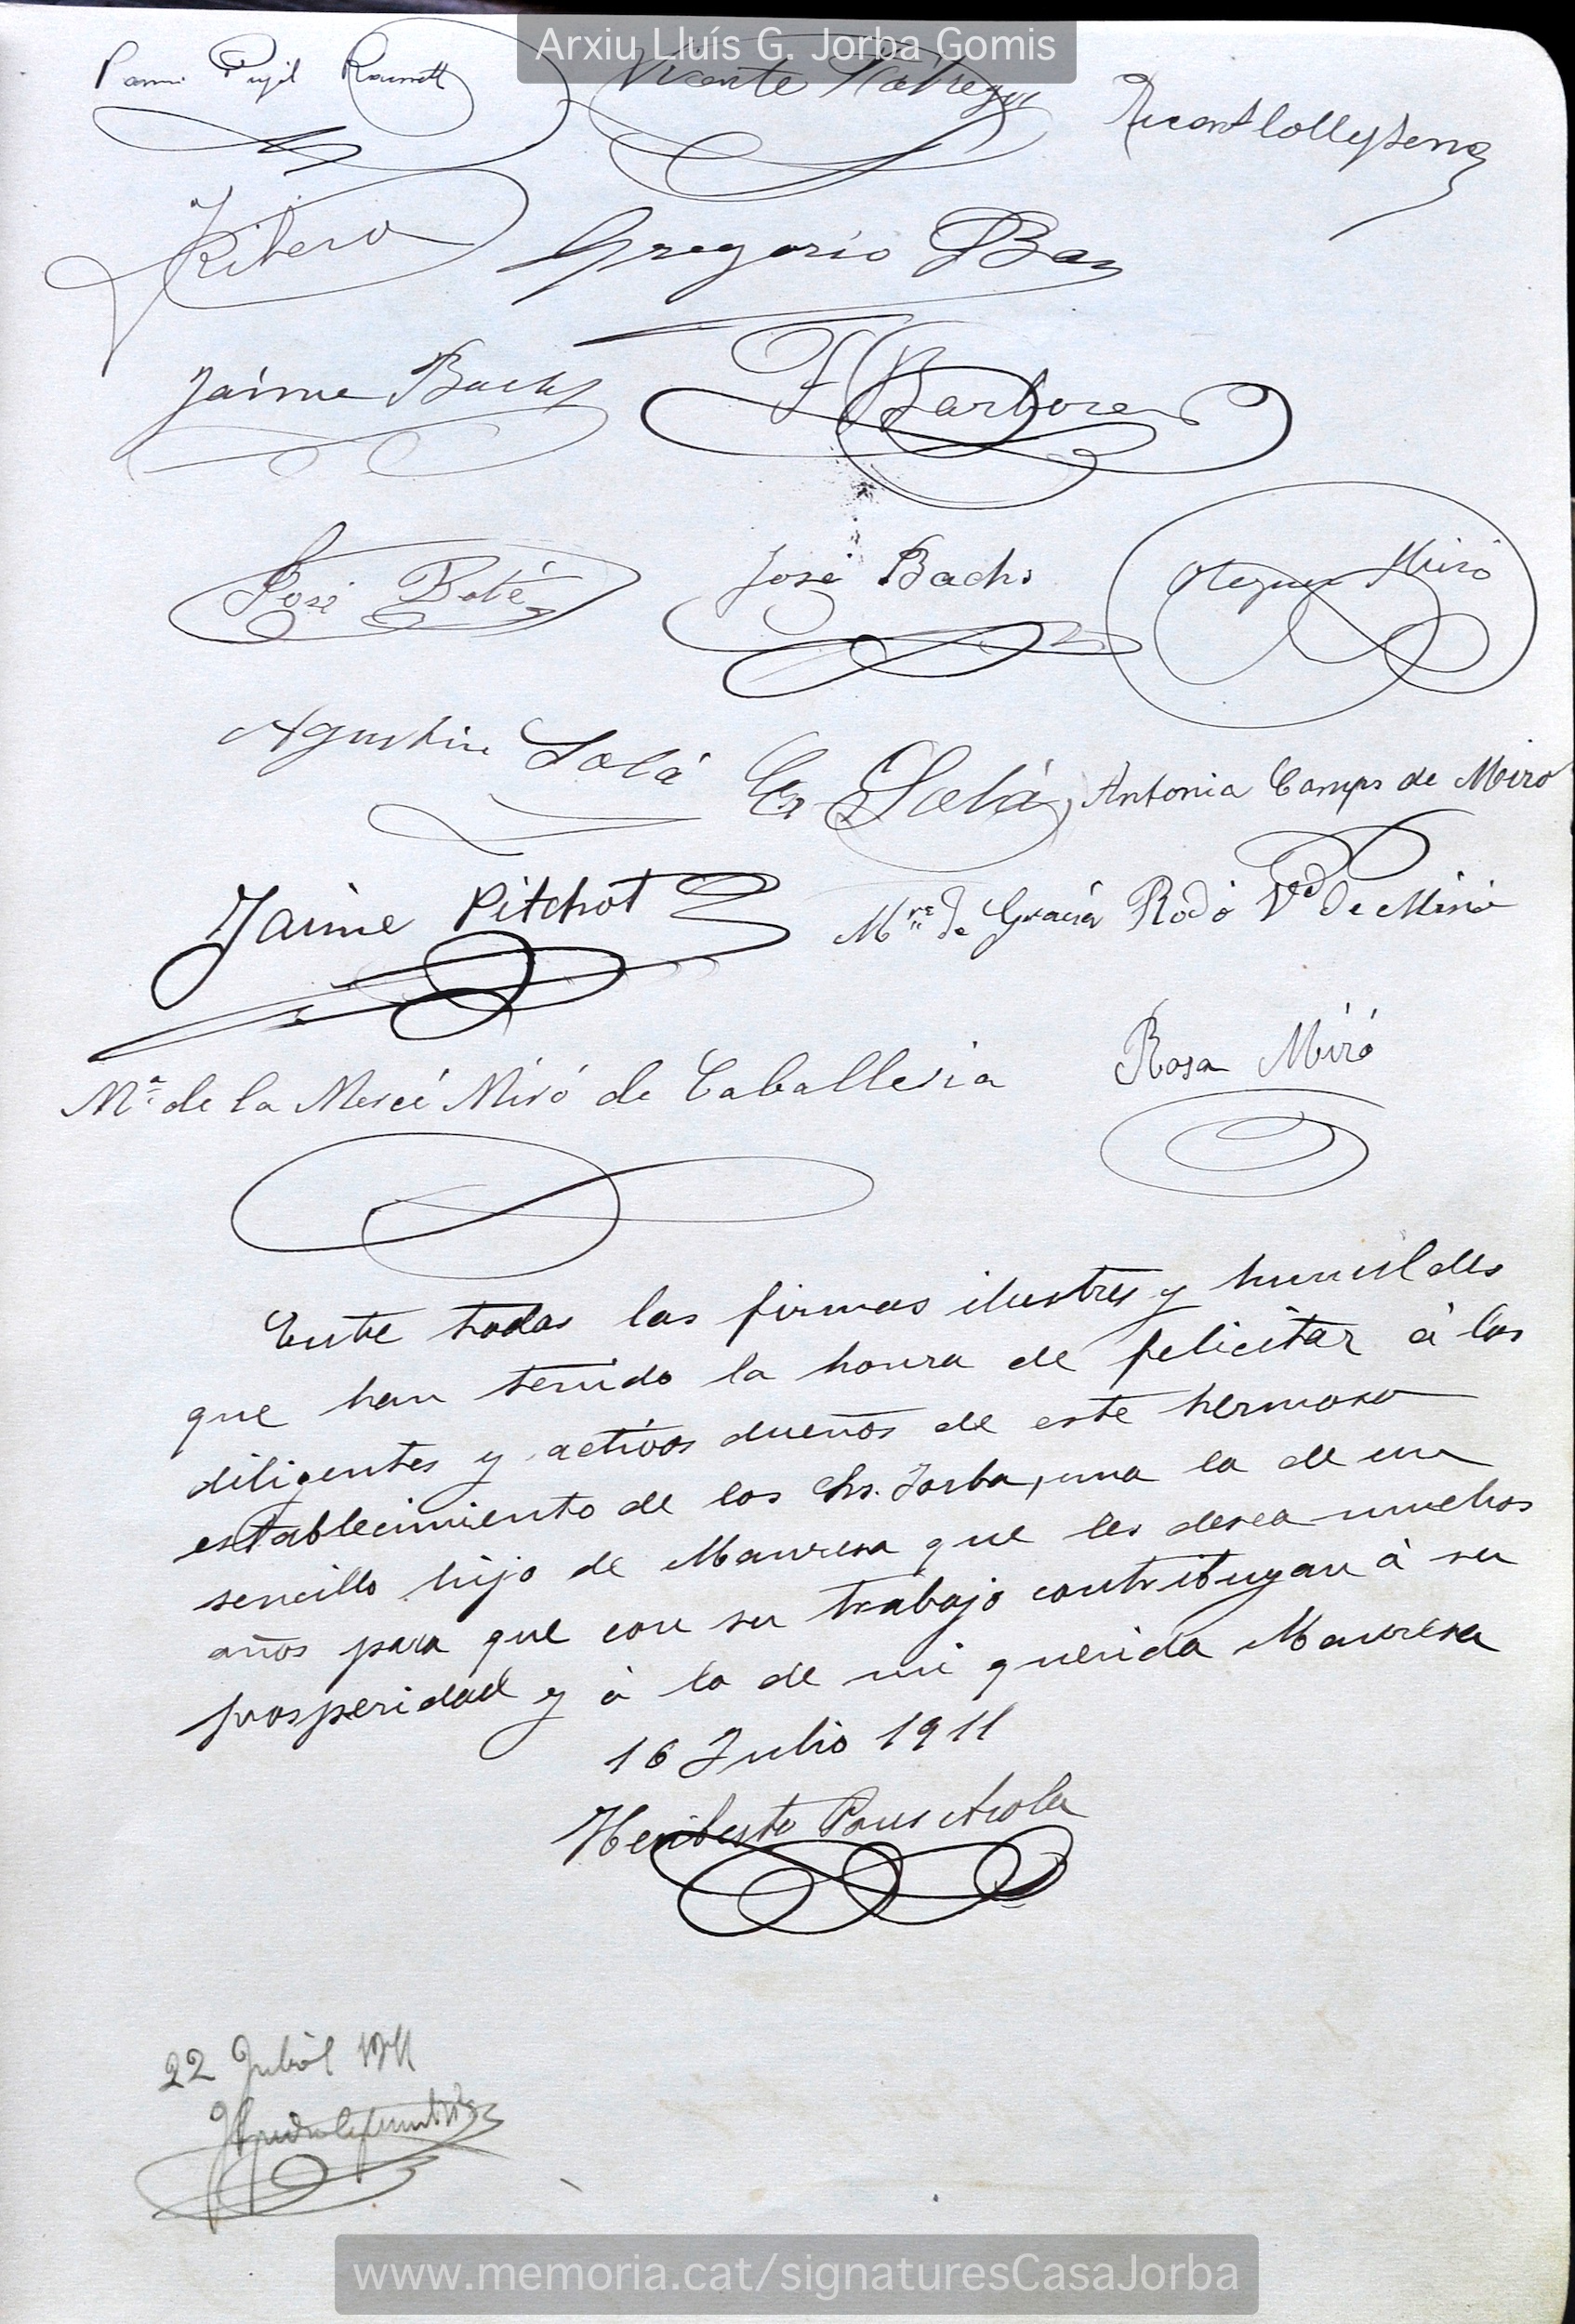 Arxiu Lluís G. Jorba Gomis
Vicente
Ribera
Gregorio
Jaime Bachs
F Barbore
José Boté
José Bachs
Oleguer Miró
Agustin Solá
Solá
Antonia Camps de Miro
Jaime Pitchot
Mª de Gracia Rodó Vda de Miró
Mª de la Mercé Miró de Caballeria
Rosa Miró
Entre todas las firmas ilustres y humildes
que han tenido la honra de felicitar á los
diligentes y activos dueños de este hermoso
establecimiento de los Srs. Jorba, una la de un
sencillo hijo de Manresa que les desea muchos
años para que con su trabajo contribuyan á su
prosperidad y á la de mi querida Manresa
16 Julio 1911
Heriberto Pous Arola
22 Juliol 1911
www.memoria.cat/signaturesCasaJorba